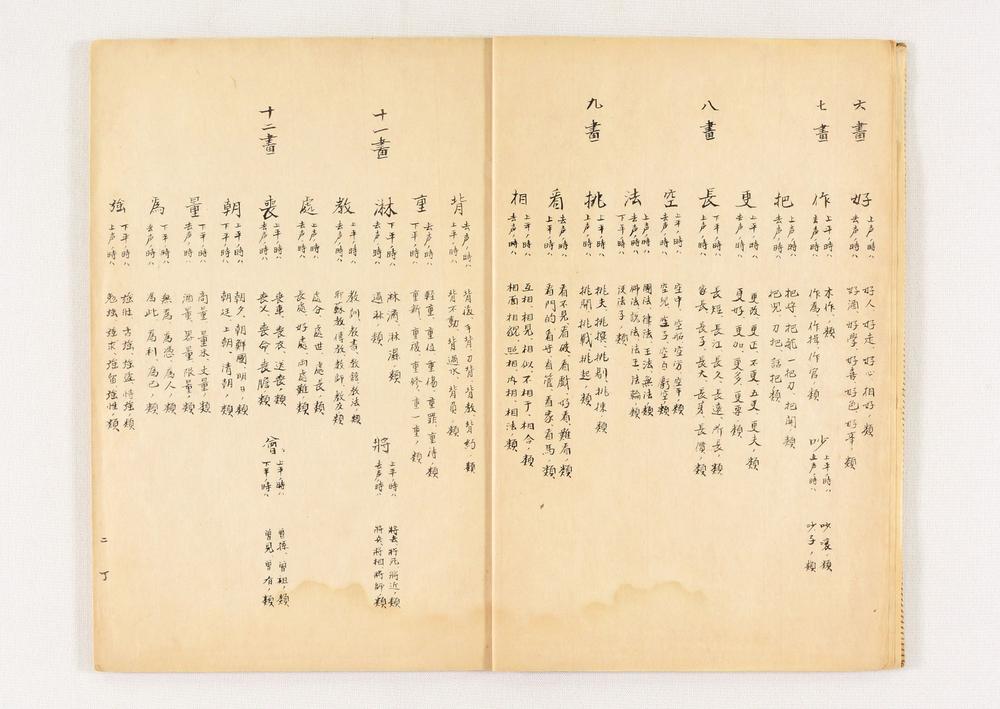 六畫
好
上声ノ時ハ
好人、好走、好心、相好ノ類
去声ノ時ハ
好酒、好学、好善、好色、好事ノ類
七畫
作
上平ノ時ハ
木作ノ類
去声ノ時ハ
作為、作揖、作官ノ類
吵
上平ノ時ハ
吵嚷ノ類
上声ノ時ハ
吵子ノ類
把
上声ノ時ハ
把守、把舵、一把刀、把開
去声ノ時ハ
把兒、刀把、話把ノ類
更
上平ノ時ハ
更改、更正、不更、五更、更夫ノ類
去声ノ時ハ
更好、更加、更多、更要ノ類
八畫
長
下平ノ時ハ
長短、長江、長久、長遠、所長ノ類
上声ノ時ハ
家長、長子、長大、長身、長價ノ類
空
上平ノ時ハ
空中、空站、空房、空手ノ類
去声ノ時ハ
空兒、空子、空白、虧空ノ類
法
上声ノ時ハ
國法、律法、王法、無法ノ類
去声ノ時ハ
師法、説法、法王、法輪ノ類
下平ノ時ハ
没法子ノ類
九畫
挑
上平ノ時ハ
挑夫、挑撰、挑剔、挑揀ノ類
上声ノ時ハ
挑開、挑戰、挑起ノ類
看
去声ノ時ハ
看不見、看破、看戲、好看、難看ノ類
上平ノ時ハ
看門的、看守、看管、看家、看馬ノ類
相
上平ノ時ハ
互相、相見、相似、不相干、相合ノ類
去声ノ時ハ
相面、相貌、照相、内相、相法ノ類
背
去声ノ時ハ
背後、手背、刀背、背教、背約ノ類
上平ノ時ハ
背不動、背過水、背負ノ類
重
去声ノ時ハ
輕重、重位、重傷、重罪、重待ノ類
下平ノ時ハ
重新、重複、重修、重一重ノ類
十一畫
淋
下平ノ時ハ
淋漓、淋濕ノ類
去声ノ時ハ
過淋ノ類
將
上平ノ時ハ
將去、將凡、將近ノ類
去声ノ時ハ
將兵、將相、將師ノ類
教
去声ノ時ハ
教訓、教書、教館、教法ノ類
上平ノ時ハ
處
上声ノ時ハ
處分、處世、處長ノ類
去声ノ時ハ
長處、好處、兩處難ノ類
十二畫
喪
上平ノ時ハ
喪事、喪衣、送喪ノ類
去声ノ時ハ
喪父、喪命、喪膽ノ類
曾
上平ノ時ハ
曾孫、曾祖ノ類
下平ノ時ハ
曾見、曾有ノ類
朝
上平ノ時ハ
朝夕、朝鮮國、明日ノ類
下平ノ時ハ
朝廷、上朝、清朝ノ類
量
下平ノ時ハ
商量、量米、丈量ノ類
去声ノ時ハ
酒量、器量、限量ノ類
為
下平ノ時ハ
無為、為惡、為人ノ類
去声ノ時ハ
為此、為利、為己ノ類
強
下平ノ時ハ
強壯、方強、強盗、恃強ノ類
上声ノ時ハ
勉強、強求、強留、強性ノ類
二丁